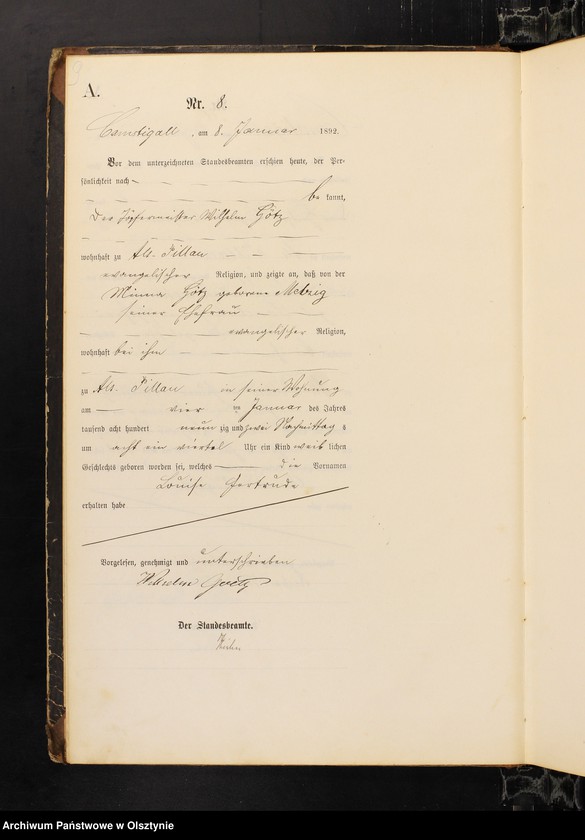 A.
Nr. 8.
Camstigall, am 8. Januar 1892.
Vor dem unterzeichneten Standesbeamten erschien heute, der Per-
sönlichkeit nach
bekannt,
der Töpfermeister Wilhelm Götz
wohnhaft zu Alt-Pillau
evangelischer Religion, und zeigte an, daß von der
Minna Götz geborene
seiner Ehefrau
evangelischer Religion,
wohnhaft bei ihm
zu Alt-Pillau in seiner Wohnung
am vier ten Januar des Jahres
tausend acht hundert neunzig und zwei Nachmittags
um acht ein viertel Uhr ein Kind weiblichen
Geschlechts geboren worden sei, welches die Vornamen
Louise Gertrude
erhalten habe
Vorgelesen, genehmigt und unterschrieben
Wilhelm Goetz
Der Standesbeamte.
Archiwum Państwowe w Olsztynie